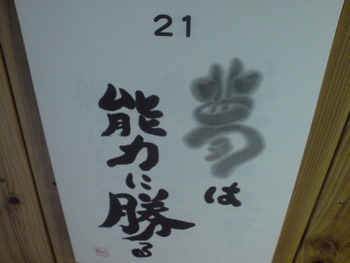 21
夢は
能力に勝る